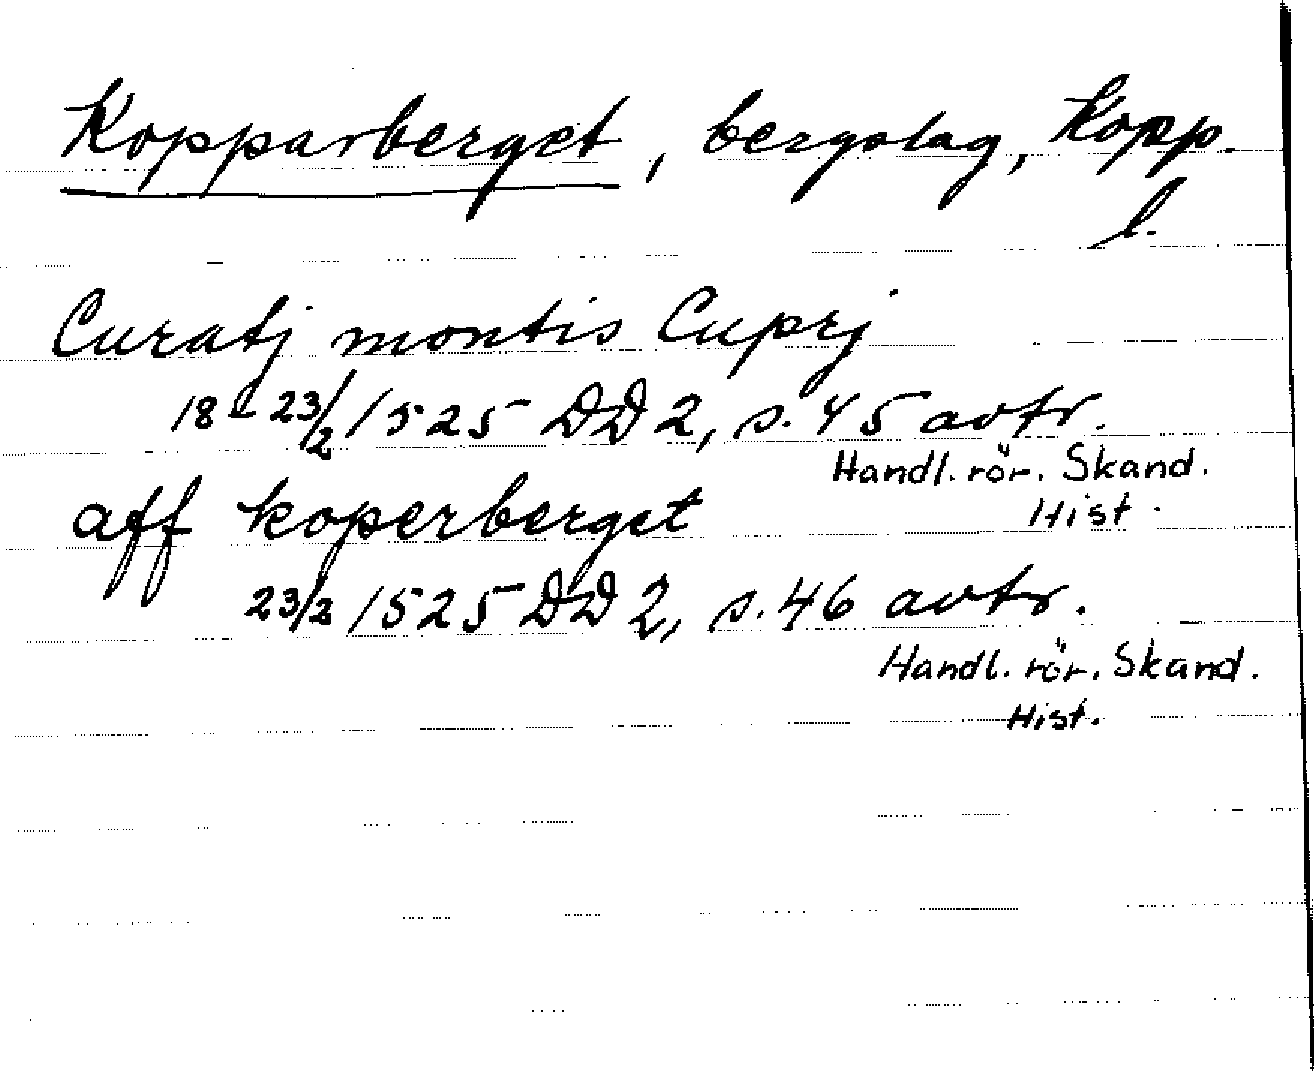 Kopparberget, bergslag, Kopp.
l.
Curatj montis Cuprj
18-23/2 1525 DD 2, s. 45 avtr.
Handl. rör. Skand.
Hist.
aff koperberget
23/2 1525 DD 2, s. 46 avtr.
Handl. rör. Skand.
Hist.